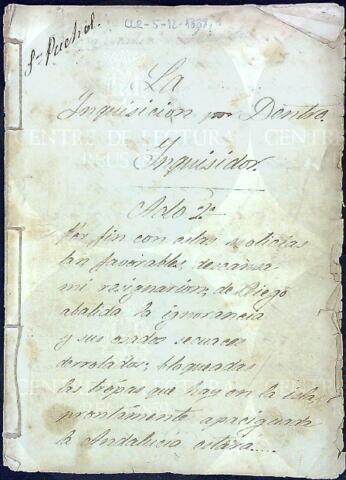 CLR-5-12-1337,1
Sr Puchol.
La
Inquisicion por Dentro
Ynquisidor.
Acto 2º
Por fin con estas noticias
tan favorables, descansa
mi resignacion; de Riego
abatida la ignorancia
y sus sordos secuaces
derrotados; bloqueadas
las tropas que hay en la isla,
prontamente apaciguada
la Andalucia estara....
CENTRE DE LECTURA
REUS